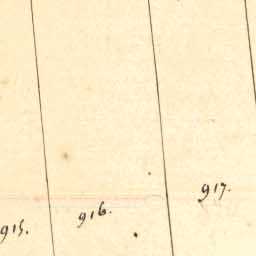 915.
916.
917.